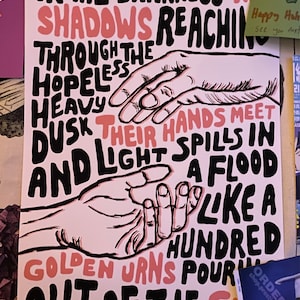 SHADOWS REACHING
THROUGH THE
HOPELESS
HEAVY
DUSK THEIR HANDS MEET
AND LIGHT SPILLS IN
A FLOOD
LIKE A
HUNDRED
GOLDEN URNS POURIN
OUT OF THE
Happy
SEE YOU
ORDER